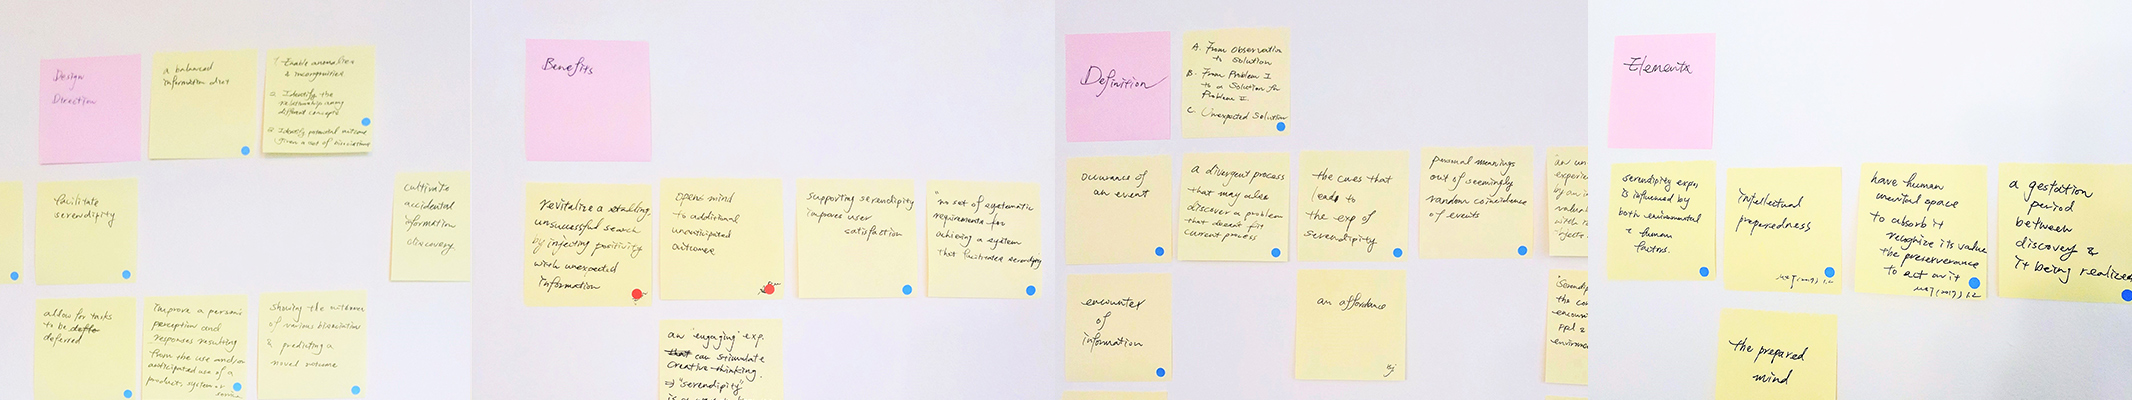 Design
Direction
a balanced
information diet
1. Enable anomalies
& incongruities
2. Identify the
relationship among
different concepts
3. Identify potential outcome
given a set of bisociations
facilitate
serendipity
cultivate
accidental
information
discovery.
allow for tasks
to be
deferred
improve a person's
perception and
responses resulting
from the use and/or
anticipated use of a
product, system or
service
showing the outcome
of various bisociations
& predicting a
novel outcome
Benefits
revitalize a
unsuccessful search
by injecting positivity
with unexpected
information
opens mind
to additional
unanticipated
outcome
supporting serendipity
improves user
satisfaction
"no set of systematic
requirements for
achieving a system
that facilitates serendipity
an "engaging" exp.
that can stimulate
creative thinking.
⇒ "serendipity"
Definition
A. From Observation
to Solution
B. From Problem I
to a Solution for
Problem II.
C. Unexpected Solution
Occurance of
an event
a divergent process
that may also
discover a problem
that doesn't fit
current process
the cues that
leads to
the exp of
serendipity
personal meanings
out of seemingly
random coincidence
of events
"an un
experie
by an i
valuab
with i
encounter
of
information
an affordance
"Serendip
the co
encoun
ppl &
environme
Elements
serendipity exp.
is influenced by
both environmental
& human
factors.
intellectual
preparedness
have human
mental space
to absorb it
recognize its value
the preserverance
to act on it
a gestation
period
between
discovery &
it being realized
the prepared
mind